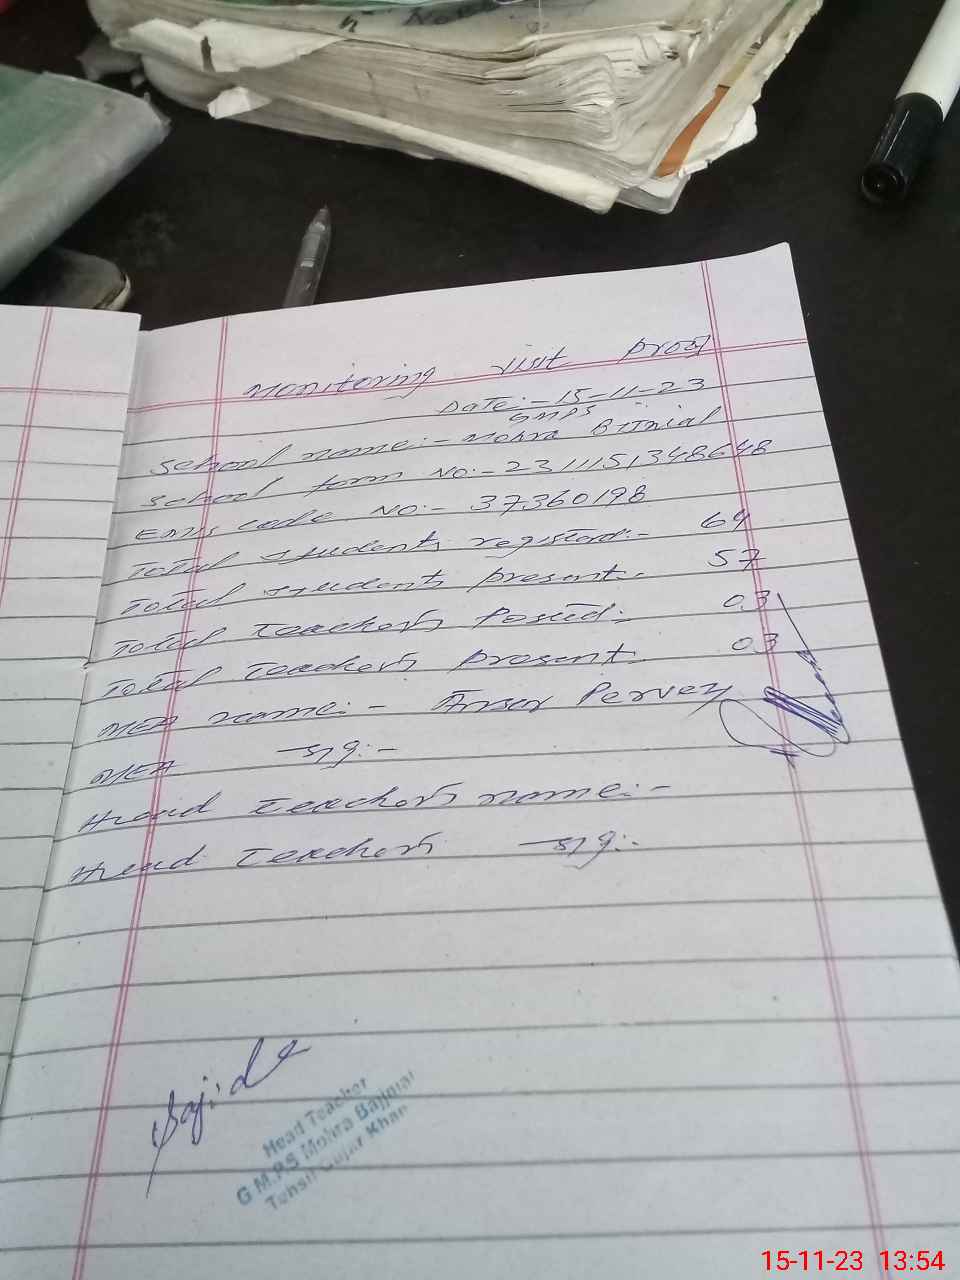 Monitoring visit proof
Date:- 15-11-23
GMPS
School name:- Mohra Bijnial
School form No:- 23111151348648
Emis code No:- 37360198
Total students registerd:- 64
Total students present:- 57
Total teachers Posted:- 03
Total teachers present:- 03
MEA name:- Ansar Pervez
MEA sig:-
Head teachers name:-
Head teachers sig:-
Sajida
Head Teacher
G.M.P.S Mohra Bajjnial
Tehsil Gujar Khan
15-11-23 13:54